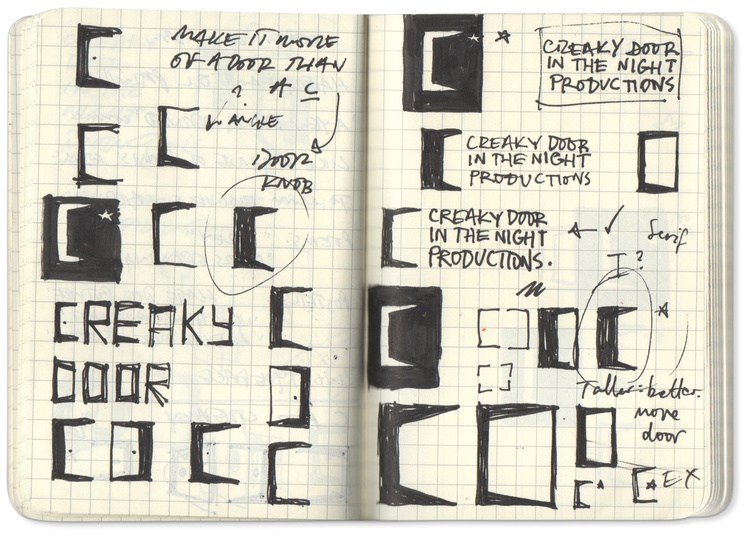 MAKE IT MORE
OF A DOOR THAN
? A C
ANGLE
DOOR
KNOB
CREAKY
DOOR
CREAKY DOOR
IN THE NIGHT
PRODUCTIONS
CREAKY DOOR
IN THE NIGHT
PRODUCTIONS
CREAKY DOOR
IN THE NIGHT
PRODUCTIONS.
Serif
I?
Taller: better.
more
door
EX